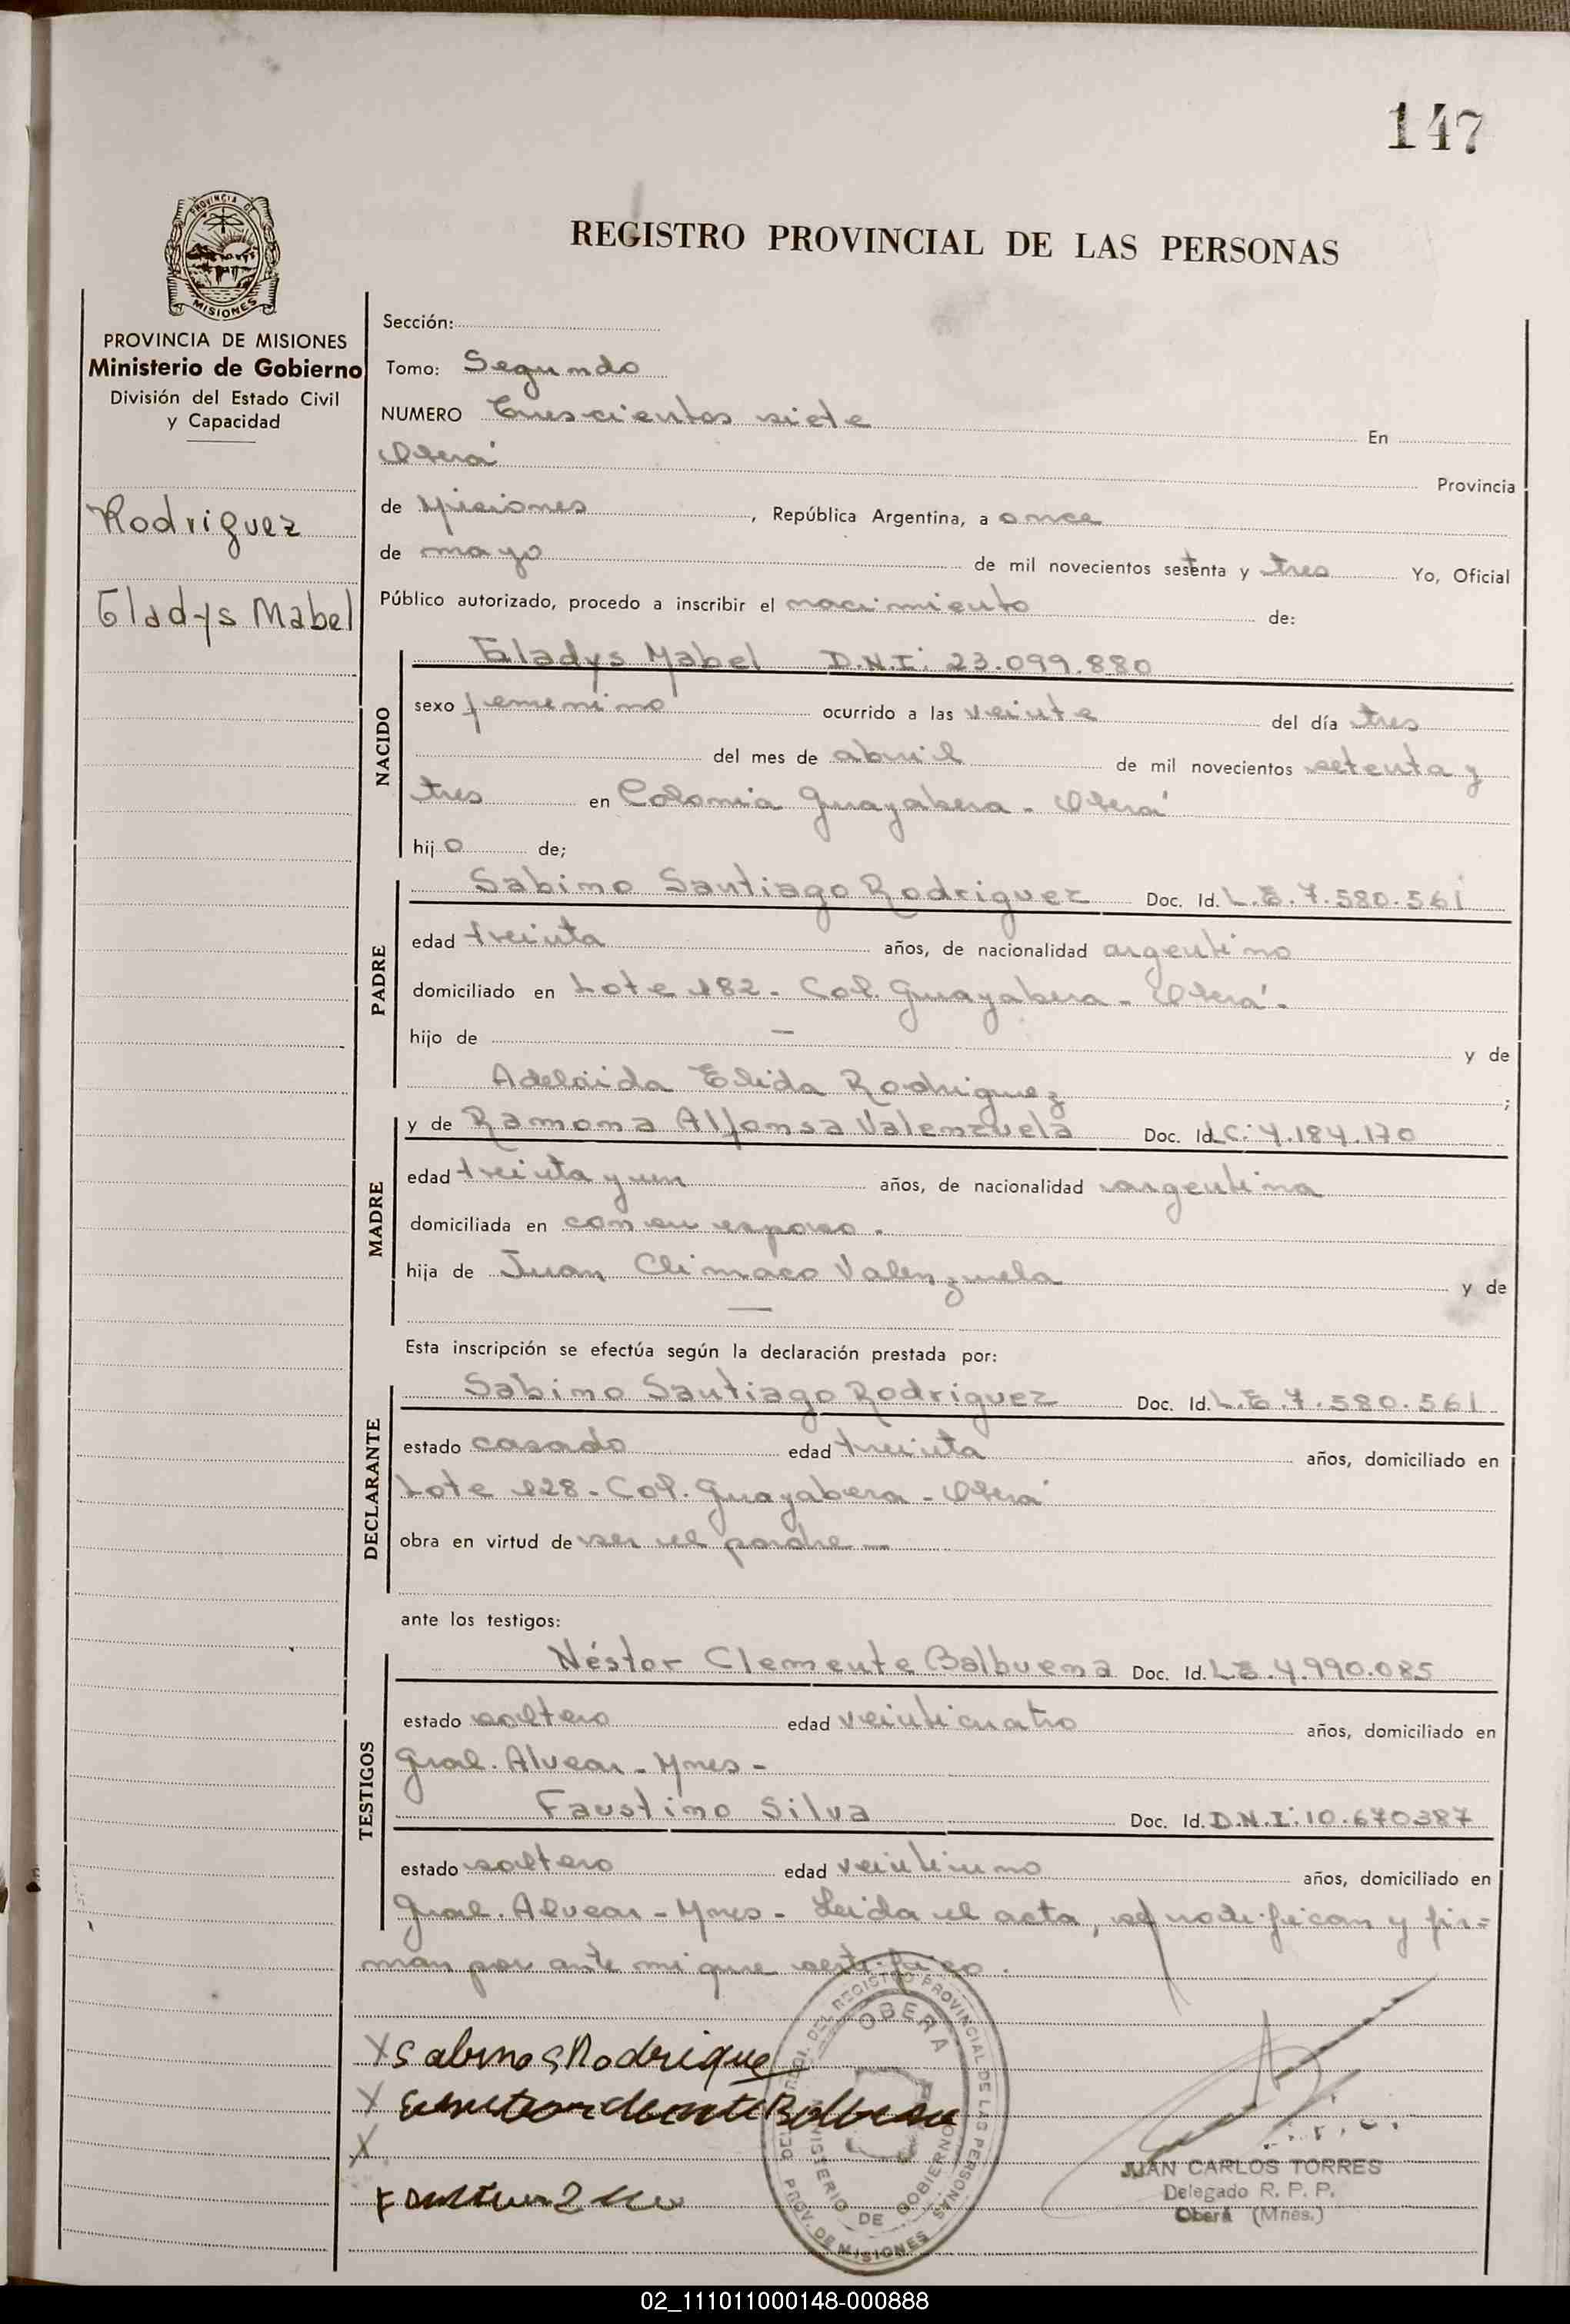 147
PROVINCIA DE
MISIONES
REGISTRO PROVINCIAL DE LAS PERSONAS
PROVINCIA DE MISIONES
Ministerio de Gobierno
División del Estado Civil
y Capacidad
Rodriguez
Gladys Mabel
Sección:
Tomo: Segundo
NUMERO Trescientos siete En
Oberá Provincia
de Misiones, República Argentina, a once
de mayo de mil novecientos setenta y tres Yo, Oficial
Público autorizado, procedo a inscribir el nacimiento de:
NACIDO
Gladys Mabel D.N.I: 23.099.880
sexo femenino ocurrido a las veinte del día tres
del mes de abril de mil novecientos setenta y
tres en Colonia Guayabera - Oberá
hijo de;
PADRE
Sabino Santiago Rodriguez Doc. Id. L.E.7.580.561
edad treinta años, de nacionalidad argentino
domiciliado en Lote 182 - Col. Guayabera - Oberá.
hijo de — y de
Adelaida Elida Rodriguez;
MADRE
y de Ramona Alfonsa Valenzuela Doc. Id. L.C: 4.184.170
edad treinta y un años, de nacionalidad argentina
domiciliada en con su esposo.
hija de Juan Climaco Valenzuela y de
—
Esta inscripción se efectúa según la declaración prestada por:
DECLARANTE
Sabino Santiago Rodriguez Doc. Id. L.E.7.580.561
estado casado edad treinta años, domiciliado en
Lote 128 - Col. Guayabera - Oberá
obra en virtud de ser el padre —
ante los testigos:
TESTIGOS
Néstor Clemente Balbuena Doc. Id. L.E.4.990.085
estado soltero edad veinticuatro años, domiciliado en
Gral. Alvear - Mnes -
Faustino Silva Doc. Id. D.N.I: 10.670387
estado soltero edad veintiuno años, domiciliado en
Gral. Alvear - Mnes - Leida el acta, se notifican y fir=
man por ante mi que certifico.
X Sabino S Rodrigue
X Clemente Balbuena
X
DEL REGISTRO PROVINCIAL DE LAS PERSONAS
OBERA
MINISTERIO DE GOBIERNO
PROV. DE MISIONES
JUAN CARLOS TORRES
Delegado R. P. P.
Oberá (Mnes.)
02_111011000148-000888